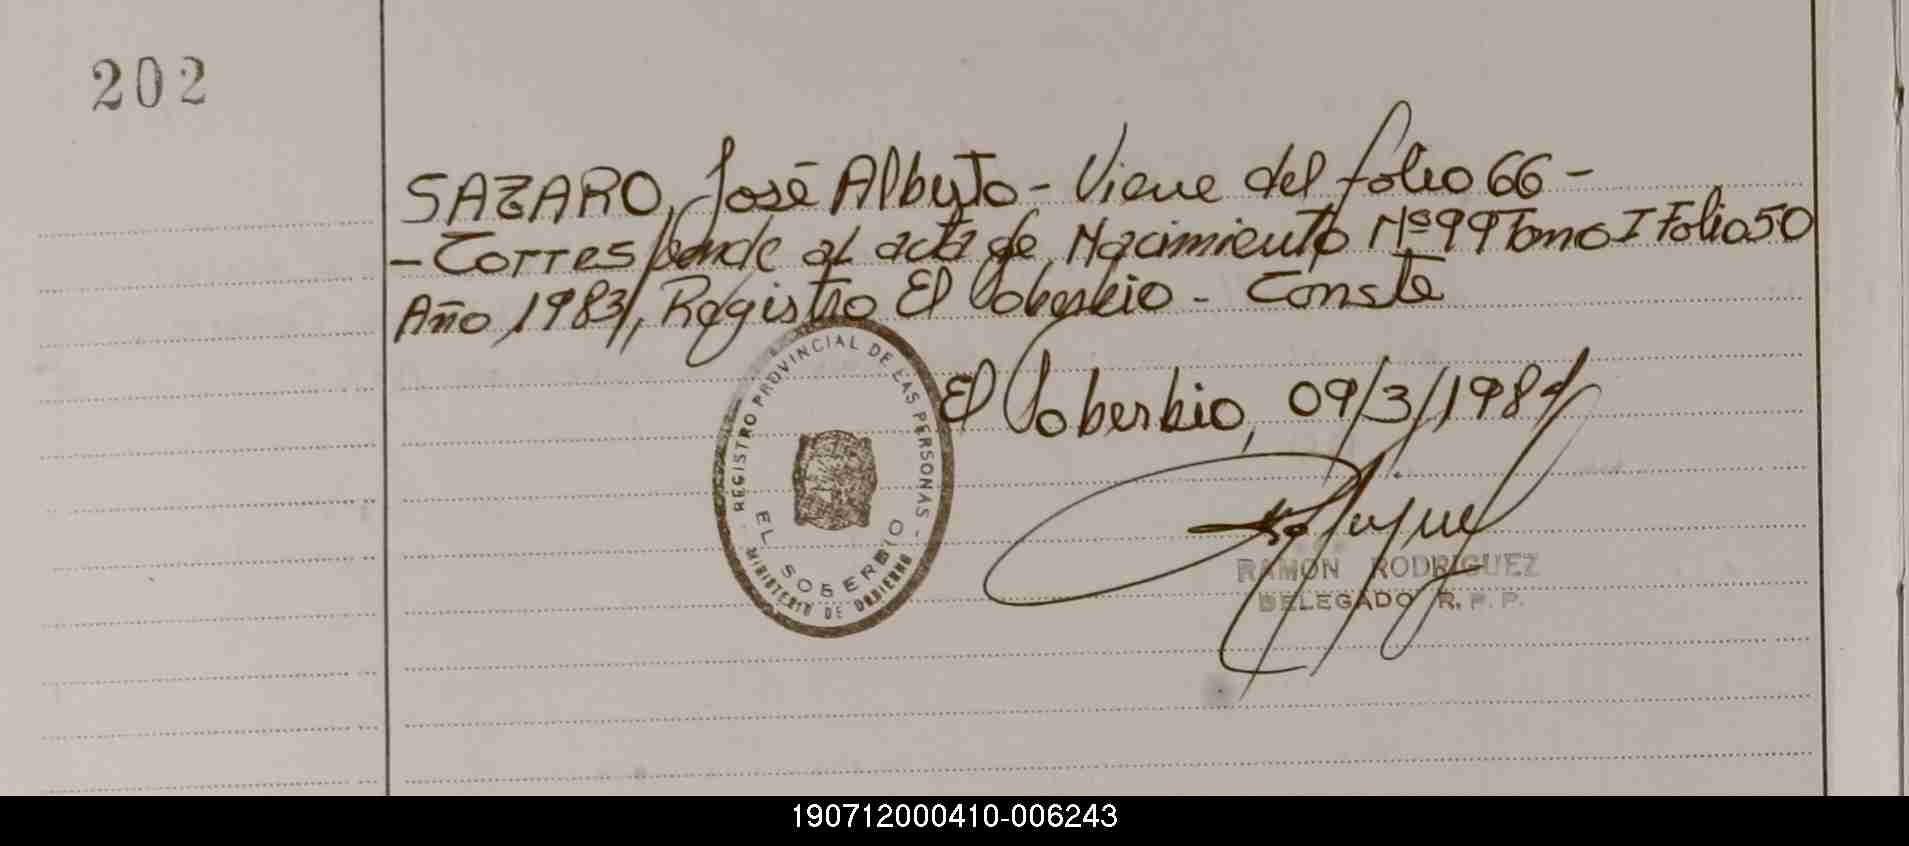 202
SAZARO, José Alberto - Viene del folio 66 -
- Corresponde al acta de Nacimiento Nº 99 Tomo I Folio 50
Año 1983, Registro El Soberbio - Conste
El Soberbio, 09/3/1984
REGISTRO PROVINCIAL DE LAS PERSONAS -
EL SOBERBIO
MINISTERIO DE GOBIERNO
RAMON RODRIGUEZ
DELEGADO R. P. P.
190712000410-006243